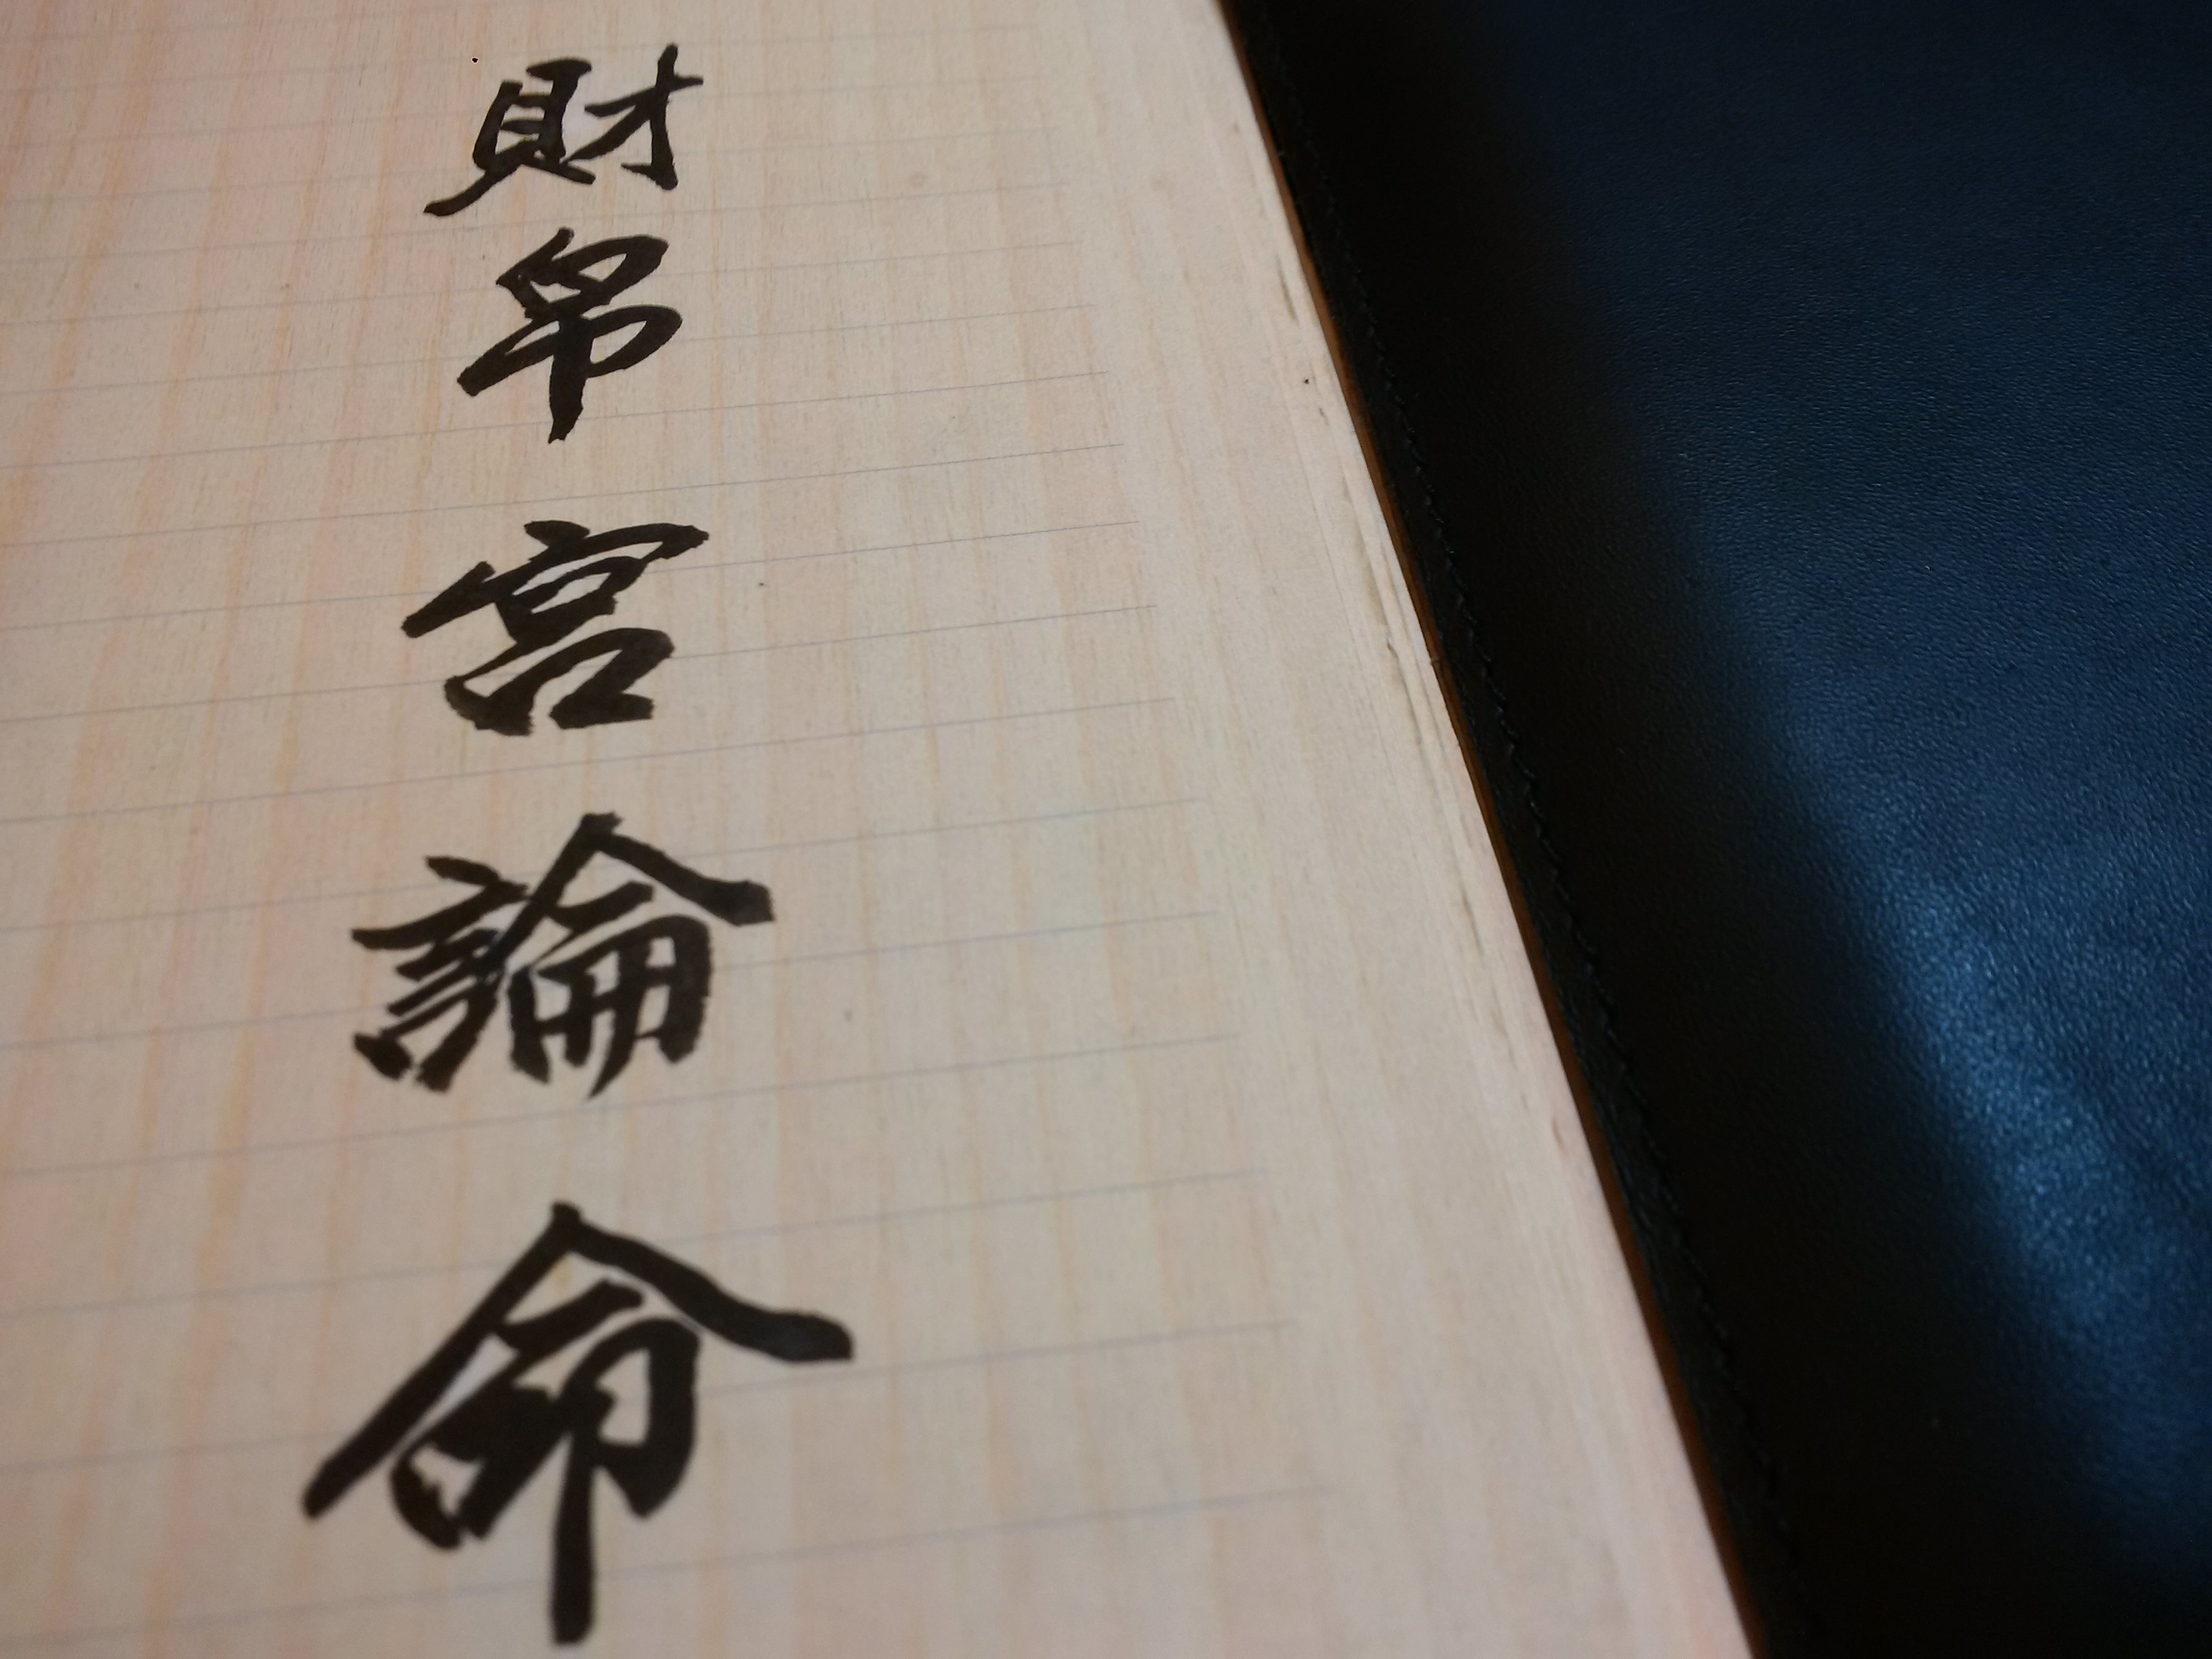 財帛宮論命